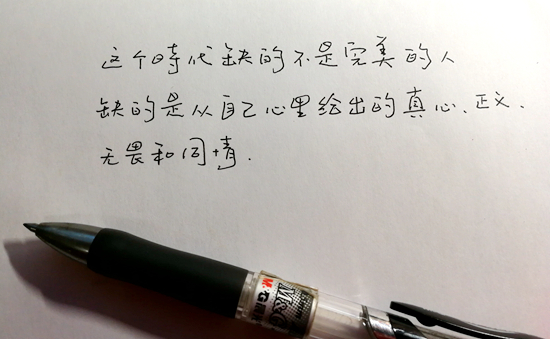 这个時代缺的不是完美的人
缺的是从自己心里给出的真心、正义、
无畏和同情.
M&G